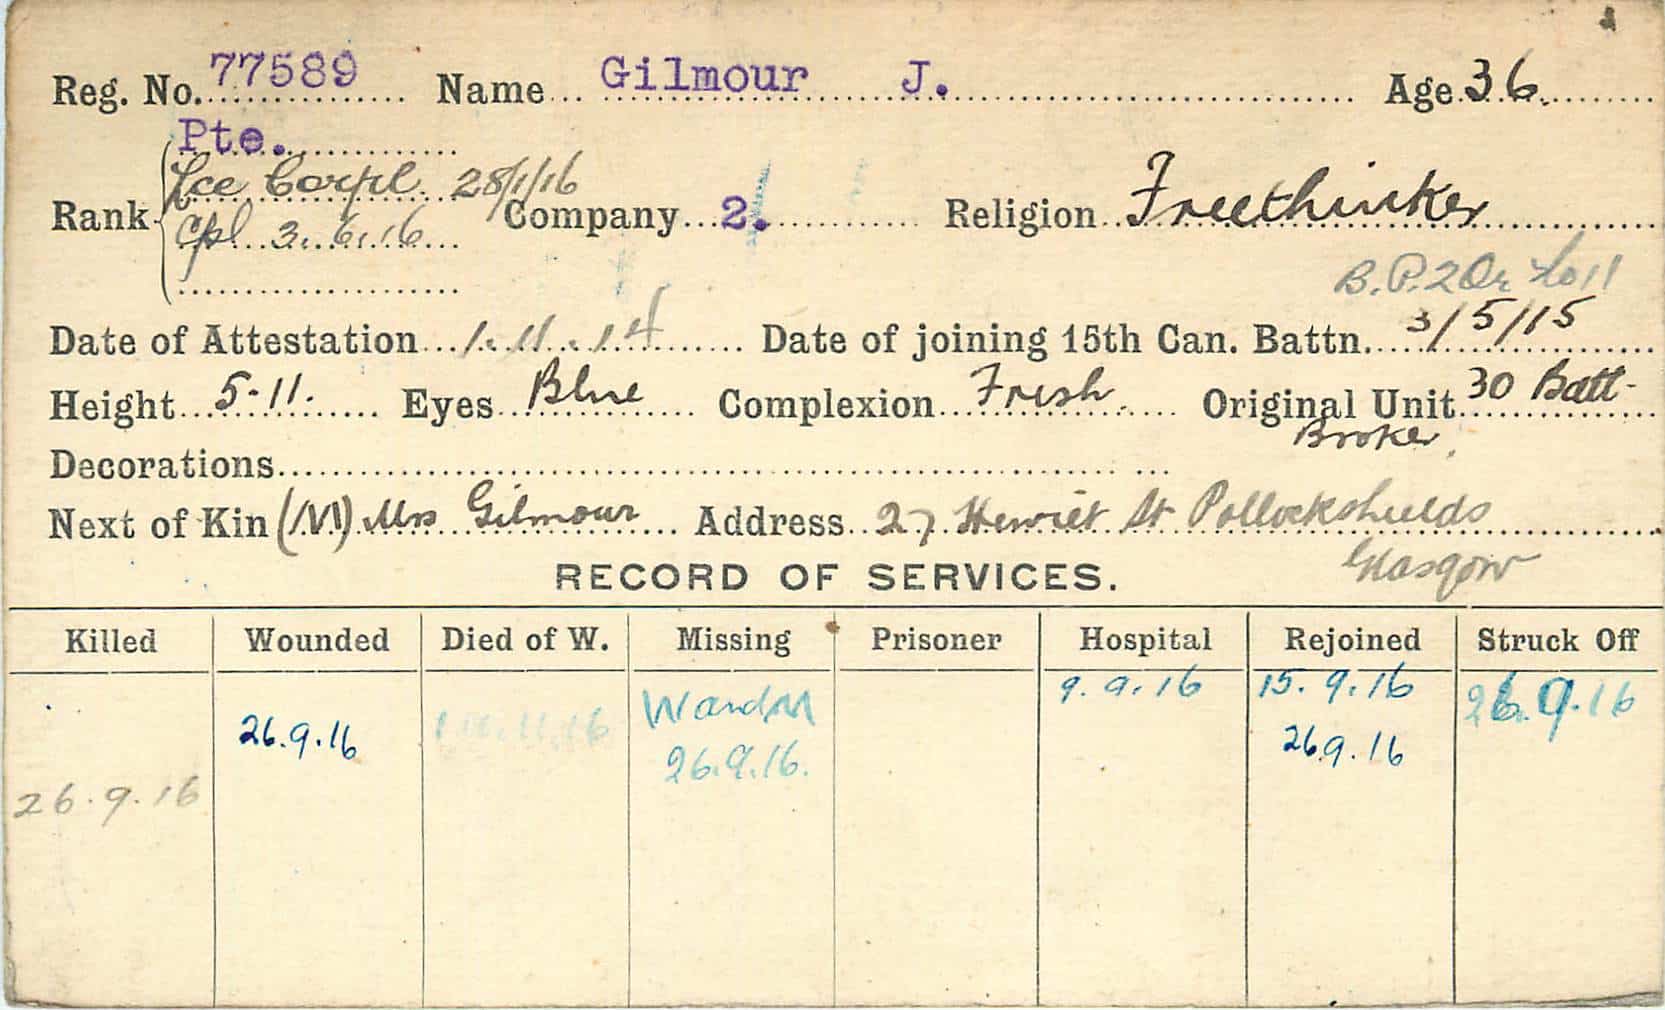 Reg. No. 77589 Name Gilmour J. Age 36
Pte.
Rank Lce Corpl. 28/1/16 Company 2. Religion Freethinker
Cpl 3.6.16
B.P. 2 Or
Date of Attestation 1.11.14 Date of joining 15th Can. Battn. 3/5/15
Height 5-11. Eyes Blue Complexion Fresh. Original Unit 30 Batt-
Broker
Decorations
Next of Kin (M) Mrs Gilmour Address 27 St Pollockshields
Glasgow
RECORD OF SERVICES.
Killed Wounded Died of W. Missing Prisoner Hospital Rejoined Struck Off
W and M 9.9.16 15.9.16 26.9.16
26.9.16 26.9.16 26.9.16
26.9.16